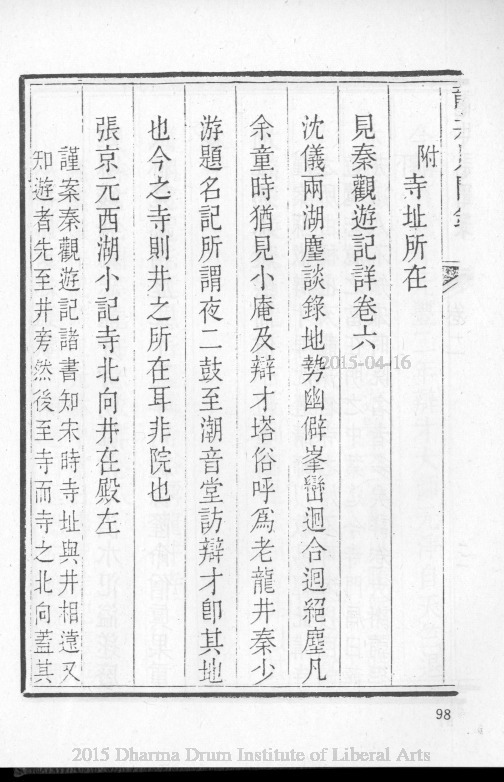 附
寺址所在
見秦觀遊記詳卷六
沈儀兩湖麈談錄地勢幽僻峯巒迴合迥絕塵凡
余童時猶見小庵及辯才塔俗呼爲老龍井秦少
游題名記所謂夜二鼓至潮音堂訪辯才卽其地
也今之寺則井之所在耳非院也
張京元西湖小記寺北向井在殿左
謹案秦觀遊記諸書知宋時寺址與井相遠又
知遊者先至井旁然後至寺而寺之北向蓋其
2015-04-16
98
2015 Dharma Drum Institute of Liberal Arts